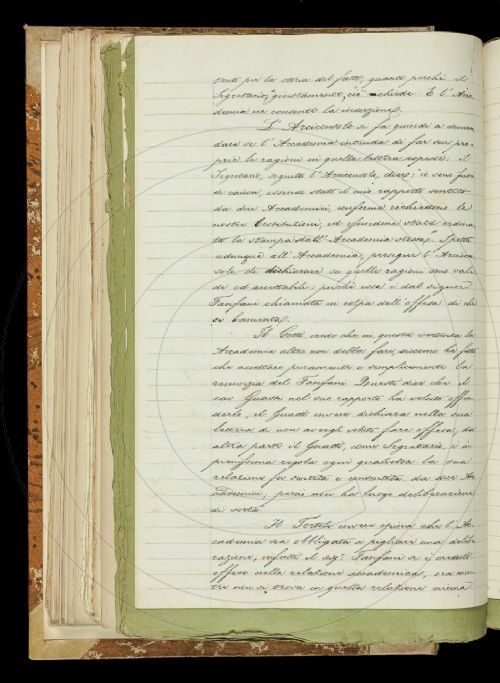 tanto per la storia del fatto, quanto perchè il
Segretario, giustamente, ciò chiede. E l'Acca-
demia ne consente la inserzione.
L'Arciconsolo si fa quindi a doman-
dare se l'Accademia intenda di far sue pro-
prie le ragioni in quella lettera esposte: il
Segretario, seguita l'Arciconsolo, dice: io sono fuori
di causa, essendo stato il mio rapporto sentito
da due Accademici, conforme richiedono le
nostre Costituzioni, ed essendone stata ordina-
ta la stampa dall'Accademia stessa. Spetta
adunque all'Accademia, prosegue l'Arcicon-
solo di dichiarare se quelle ragioni sono vali-
de ed accettabili; poichè essa è dal signor
Fanfani chiamata in colpa dell'offesa di che
si lamenta.
Il Cotti crede che in questa vertenza la
Accademia altro non debba fare siccome ha fatto
che accettare puramente e semplicemente la
renunzia del Fanfani. Questi dice che il
cav. Guasti nel suo rapporto ha voluto offen-
derlo, il Guasti invece dichiara nella sua
lettera di non avergli voluto fare offesa; da
altra parte il Guasti, come Segretario, è in
pienissima regola ogni qualvolta la sua
relazione fu sentita e consentita da due Ac-
cademici; perciò non ha luogo deliberazione
di sorta.
Il Tortoli invece opina che l'Ac-
cademia sia obbligata a pigliare una delibe-
razione, infatti il sig. Fanfani si è creduto
offeso nella relazione accademica, ora men-
tre non si trova in quella relazione niuna